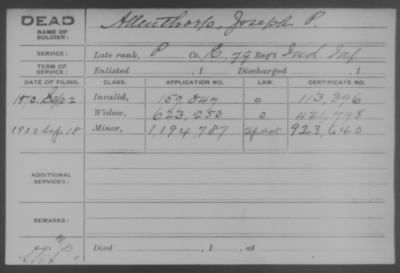 DEAD
NAME OF SOLDIER: Allenthorp, Joseph P.
SERVICE: Late rank, P Co. E, 79 Reg't Ind Inf
TERM OF SERVICE: Enlisted , 1 Discharged , 1
DATE OF FILING. CLASS. APPLICATION NO. LAW. CERTIFICATE NO.
Invalid, 159.047 o 113,396
Widow, 623,280 o 421,798
Minor, 1,194,787 923,640
ADDITIONAL SERVICES:
REMARKS:
Died , 1 , at